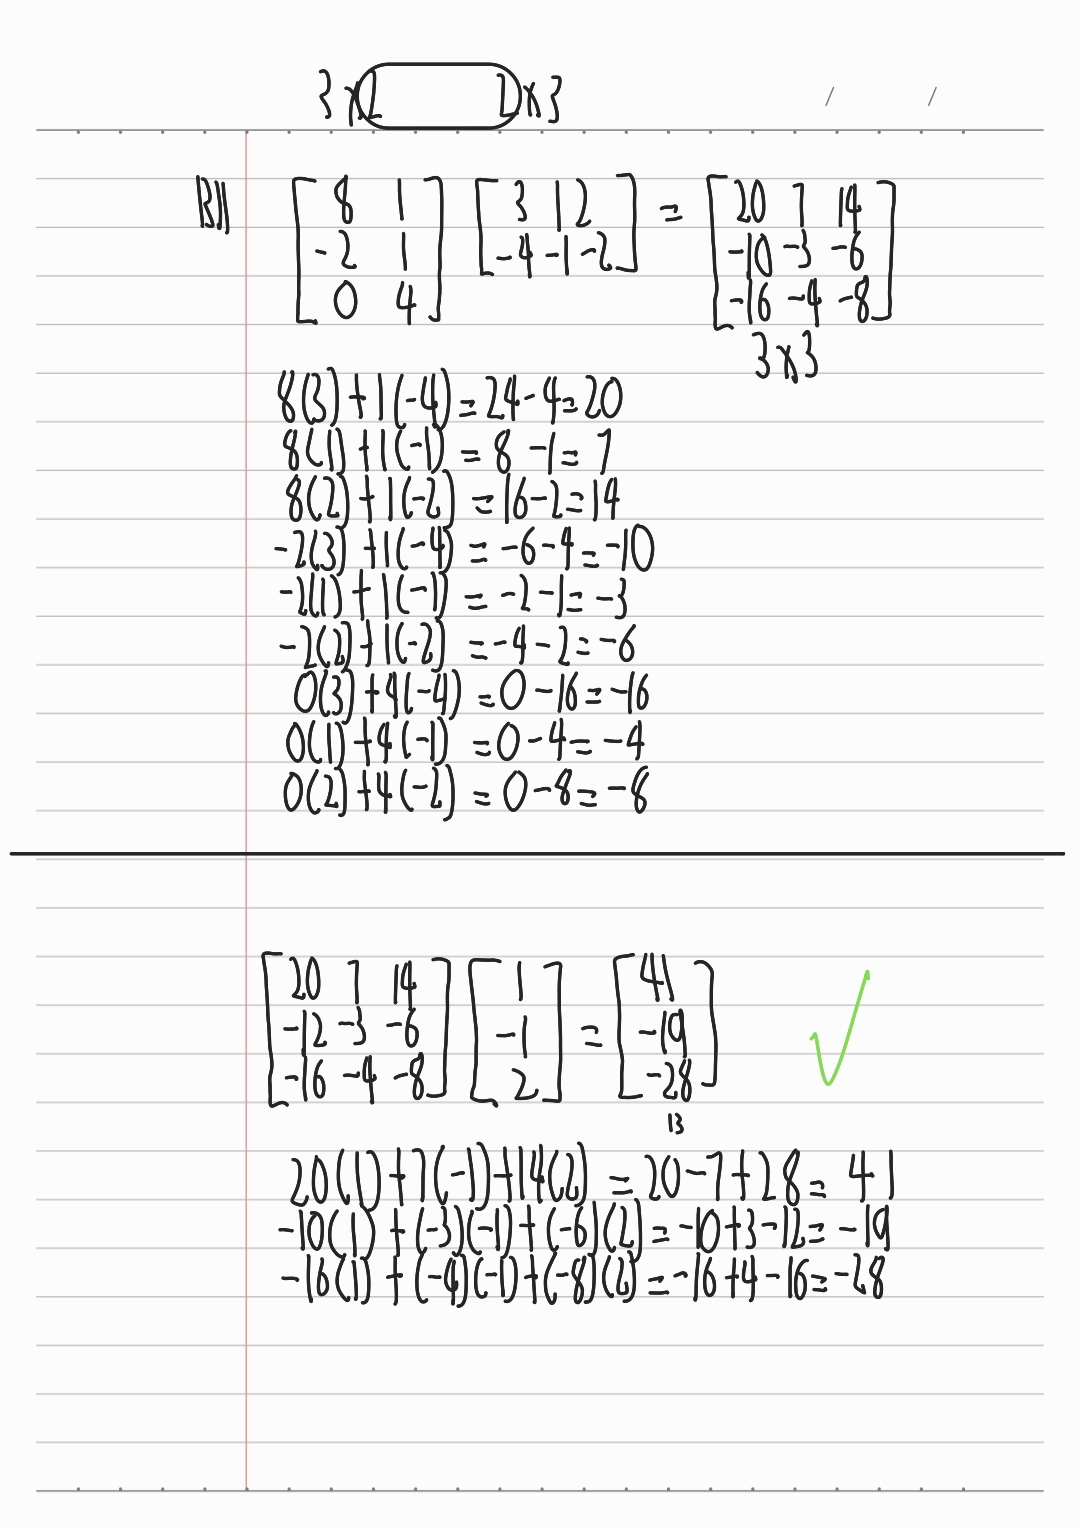 3 x 2 2 x 3
[ 8 1 ] [ 3 1 2 ] = [ 20 7 14 ]
[ -2 1 ] [ -4 -1 -2 ] [ -10 -3 -6 ]
[ 0 4 ] [ -16 -4 -8 ]
3 x 3
8(3) + 1(-4) = 24 - 4 = 20
8(1) + 1(-1) = 8 - 1 = 7
8(2) + 1(-2) = 16 - 2 = 14
-2(3) + 1(-4) = -6 - 4 = -10
-2(1) + 1(-1) = -2 - 1 = -3
-2(2) + 1(-2) = -4 - 2 = -6
0(3) + 4(-4) = 0 - 16 = -16
0(1) + 4(-1) = 0 - 4 = -4
0(2) + 4(-2) = 0 - 8 = -8
[ 20 7 14 ] [ 1 ] [ 41 ]
[ -12 -3 -6 ] [ -1 ] = [ -19 ]
[ -16 -4 -8 ] [ 2 ] [ -28 ]
13
20(1) + 7(-1) + 14(2) = 20 - 7 + 28 = 41
-10(1) + (-3)(-1) + (-6)(2) = -10 + 3 - 12 = -19
-16(1) + (-4)(-1) + (-8)(2) = -16 + 4 - 16 = -28